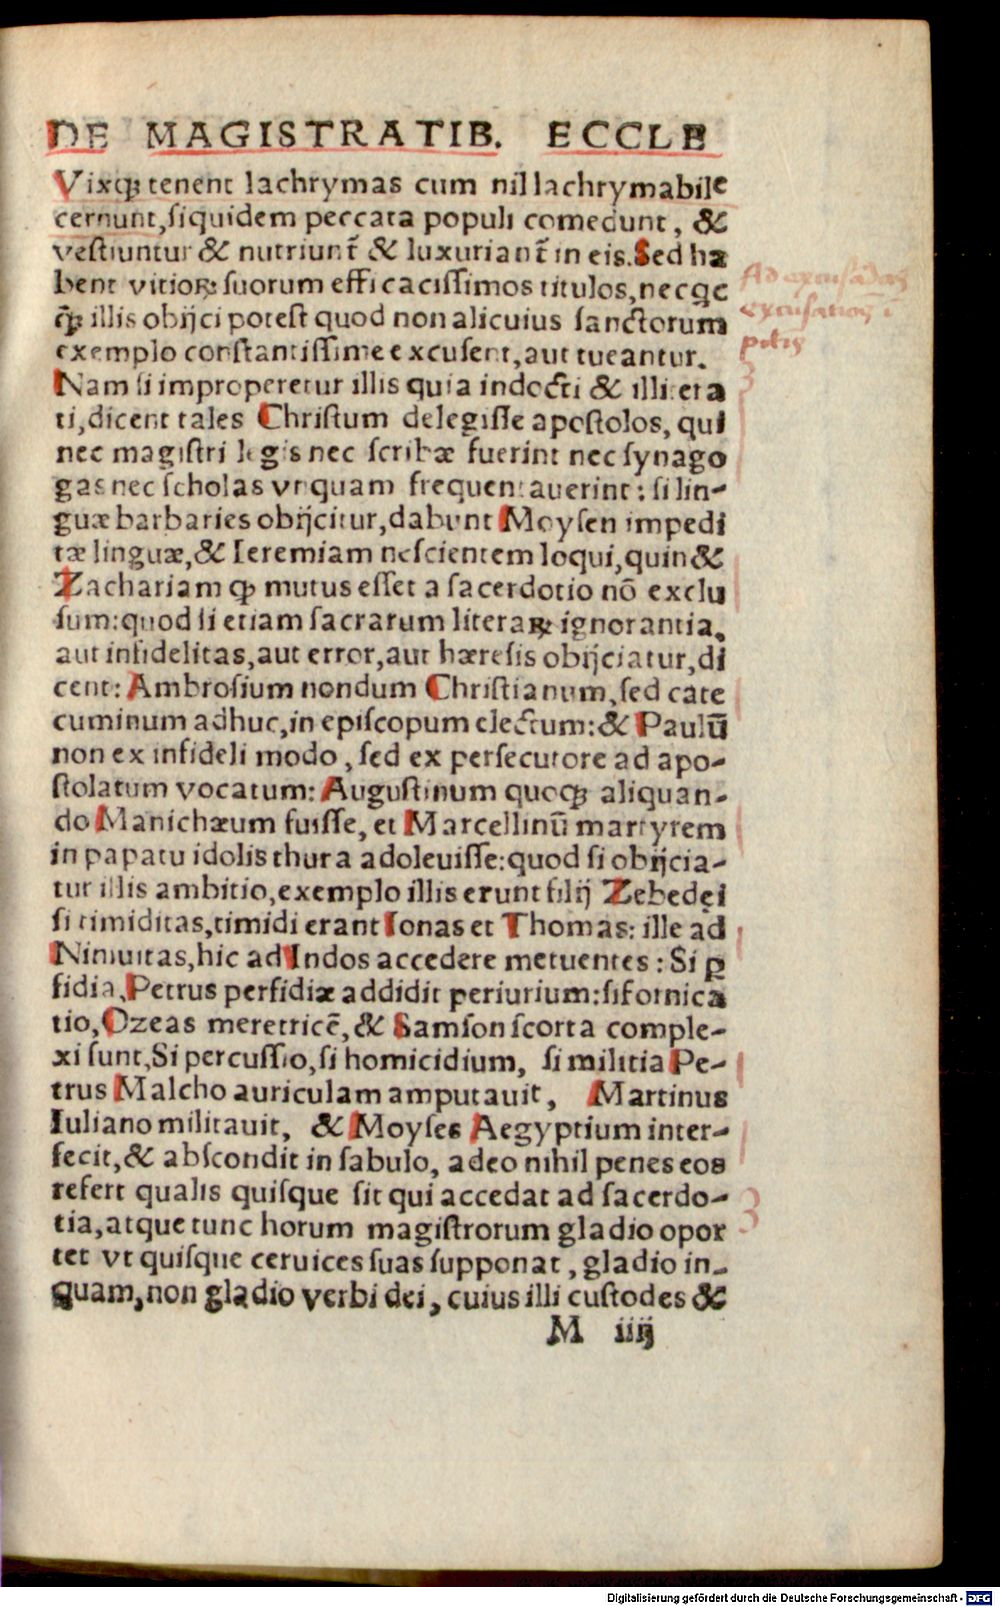 DE MAGISTRATIB. ECCLE
Vixqꝫ tenent lachrymas cum nil lachrymabile
cernunt, siquidem peccata populi comedunt, &
vestiuntur & nutriunt̃ & luxuriant̃ in eis. Sed ha
bent vitioꝝ suorum efficacissimos titulos, necqꝫ
illis obijci potest quod non alicuius sanctorum
exemplo constantissime excusent, aut tueantur.
Nam si improperetur illis quia indocti & illitera
ti, dicent tales Christum delegisse apostolos, qui
nec magistri legis nec scribæ fuerint nec synago
gas nec scholas vnquam frequentauerint: si lin-
guæ barbaries obijcitur, dabunt Moysen impedi
tæ linguæ, & Ieremiam nescientem loqui, quin &
Zachariam ꝙ mutus esset a sacerdotio nō exclu
sum: quod si etiam sacrarum literaꝝ ignorantia,
aut infidelitas, aut error, aut hæresis obijciatur, di
cent: Ambrosium nondum Christianum, sed cate
cuminum adhuc, in episcopum electum: & Paulū
non ex infideli modo, sed ex persecutore ad apo-
stolatum vocatum: Augustinum quoqꝫ aliquan-
do Manichæum fuisse, et Marcellinū martyrem
in papatu idolis thura adoleuisse: quod si obijcia-
tur illis ambitio, exemplo illis erunt filij Zebedęi
si timiditas, timidi erant Ionas et Thomas: ille ad
Niniuitas, hic ad Indos accedere metuentes: Si ꝑ
fidia, Petrus perfidiæ addidit periurium: si fornica
tio, Ozeas meretricē, & Samson scorta comple-
xi sunt, Si percussio, si homicidium, si militia Pe-
trus Malcho auriculam amputauit, Martinus
Iuliano militauit, & Moyses Aegyptium inter-
fecit, & abscondit in sabulo, adeo nihil penes eos
refert qualis quisque sit qui accedat ad sacerdo-
tia, atque tunc horum magistrorum gladio opor
tet vt quisque ceruices suas supponat, gladio in-
quam, non gladio verbi dei, cuius illi custodes &
M iiij
Ad excusādas
excusationes ī
Digitalisierung gefördert durch die Deutsche Forschungsgemeinschaft - DFG